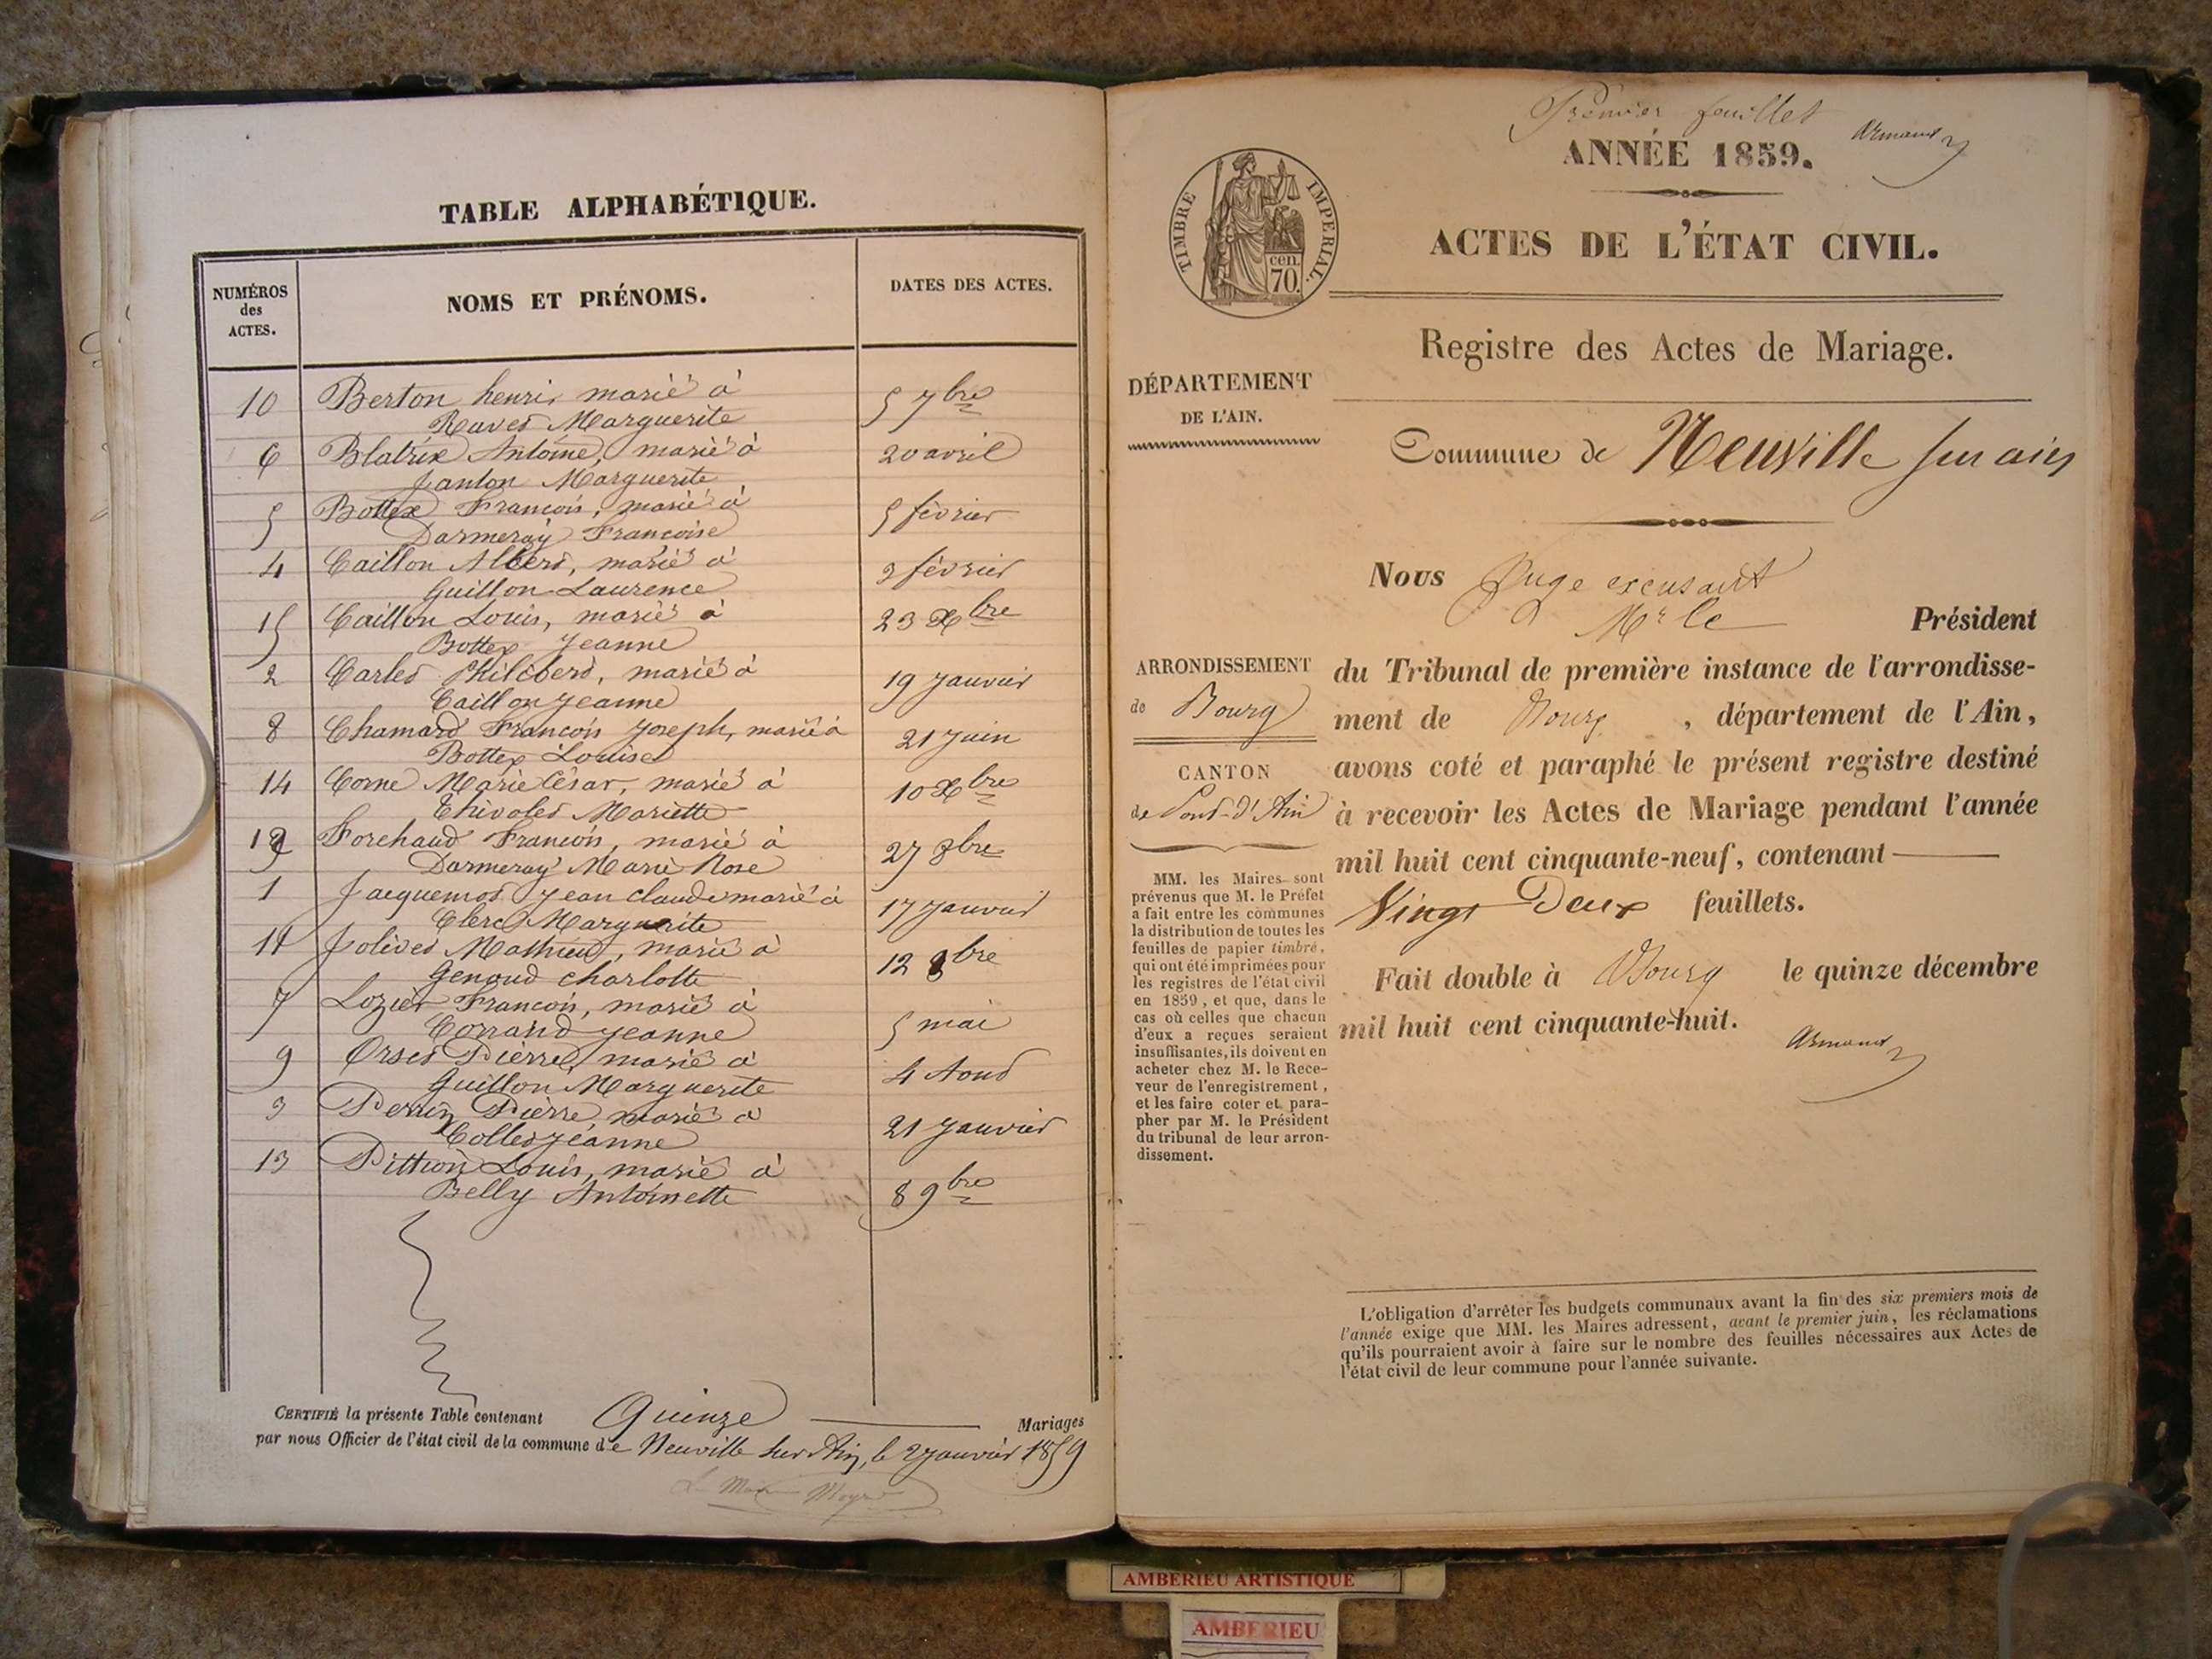 TABLE ALPHABÉTIQUE.
NUMÉROS
des
ACTES.
NOMS ET PRÉNOMS.
DATES DES ACTES.
10 Berton henri, marié à 5 7bre
Ravet Marguerite
6 Blatrix Antoine, marié à 20 avril
Janton Marguerite
5 Bottex François, marié à 5 février
Darmeray Françoise
4 Caillon Albert, marié à 3 février
Guillon Laurence
15 Caillon Louis, marié à 23 Xbre
Bottex Jeanne
2 Carlet Philibert, marié à 19 Janvier
Caillon Jeanne
8 Chamard François Joseph, marié à 21 Juin
Bottex Louise
14 Corne Marie César, marié à 10 Xbre
Chivolet Mariette
12 Forchaud François, marié à 27 8bre
Darmeray Marie Rose
1 Jacquemot Jean claude marié à 17 Janvier
Clerc Marguerite
11 Jolivet Mathieu, marié à 12 8bre
Genoud charlotte
7 Lozier François, marié à 5 mai
Corrand Jeanne
9 Orset Pierre, marié à 4 Aout
Guillon Marguerite
3 Perrin Pierre, marié à 21 Janvier
Collet Jeanne
13 Pittion Louis, marié à 8 9bre
Belly Antoinette
CERTIFIÉ la présente Table contenant Quinze Mariages
par nous Officier de l'état civil de la commune de Neuville sur Ain, le 2 janvier 1859
Le Maire
Premier feuillet
Armand
ANNÉE 1859.
TIMBRE IMPERIAL.
cen.
70.
ACTES DE L'ÉTAT CIVIL.
Registre des Actes de Mariage.
DÉPARTEMENT
DE L'AIN.
Commune de Neuville sur ain
Nous Juge excusant
Mr le Président
ARRONDISSEMENT
de Bourg
CANTON
de Pont-d'Ain
du Tribunal de première instance de l'arrondisse-
ment de Bourg, département de l'Ain,
avons coté et paraphé le présent registre destiné
à recevoir les Actes de Mariage pendant l'année
mil huit cent cinquante-neuf, contenant
Vingt Deux feuillets.
Fait double à Bourg le quinze décembre
mil huit cent cinquante-huit.
Armand
MM. les Maires sont
prévenus que M. le Préfet
a fait entre les communes
la distribution de toutes les
feuilles de papier timbré,
qui ont été imprimées pour
les registres de l'état civil
en 1859, et que, dans le
cas où celles que chacun
d'eux a reçues seraient
insuffisantes, ils doivent en
acheter chez M. le Rece-
veur de l'enregistrement,
et les faire coter et para-
pher par M. le Président
du tribunal de leur arron-
dissement.
L'obligation d'arrêter les budgets communaux avant la fin des six premiers mois de
l'année exige que MM. les Maires adressent, avant le premier juin, les réclamations
qu'ils pourraient avoir à faire sur le nombre des feuilles nécessaires aux Actes de
l'état civil de leur commune pour l'année suivante.
AMBERIEU ARTISTIQUE
AMBERIEU